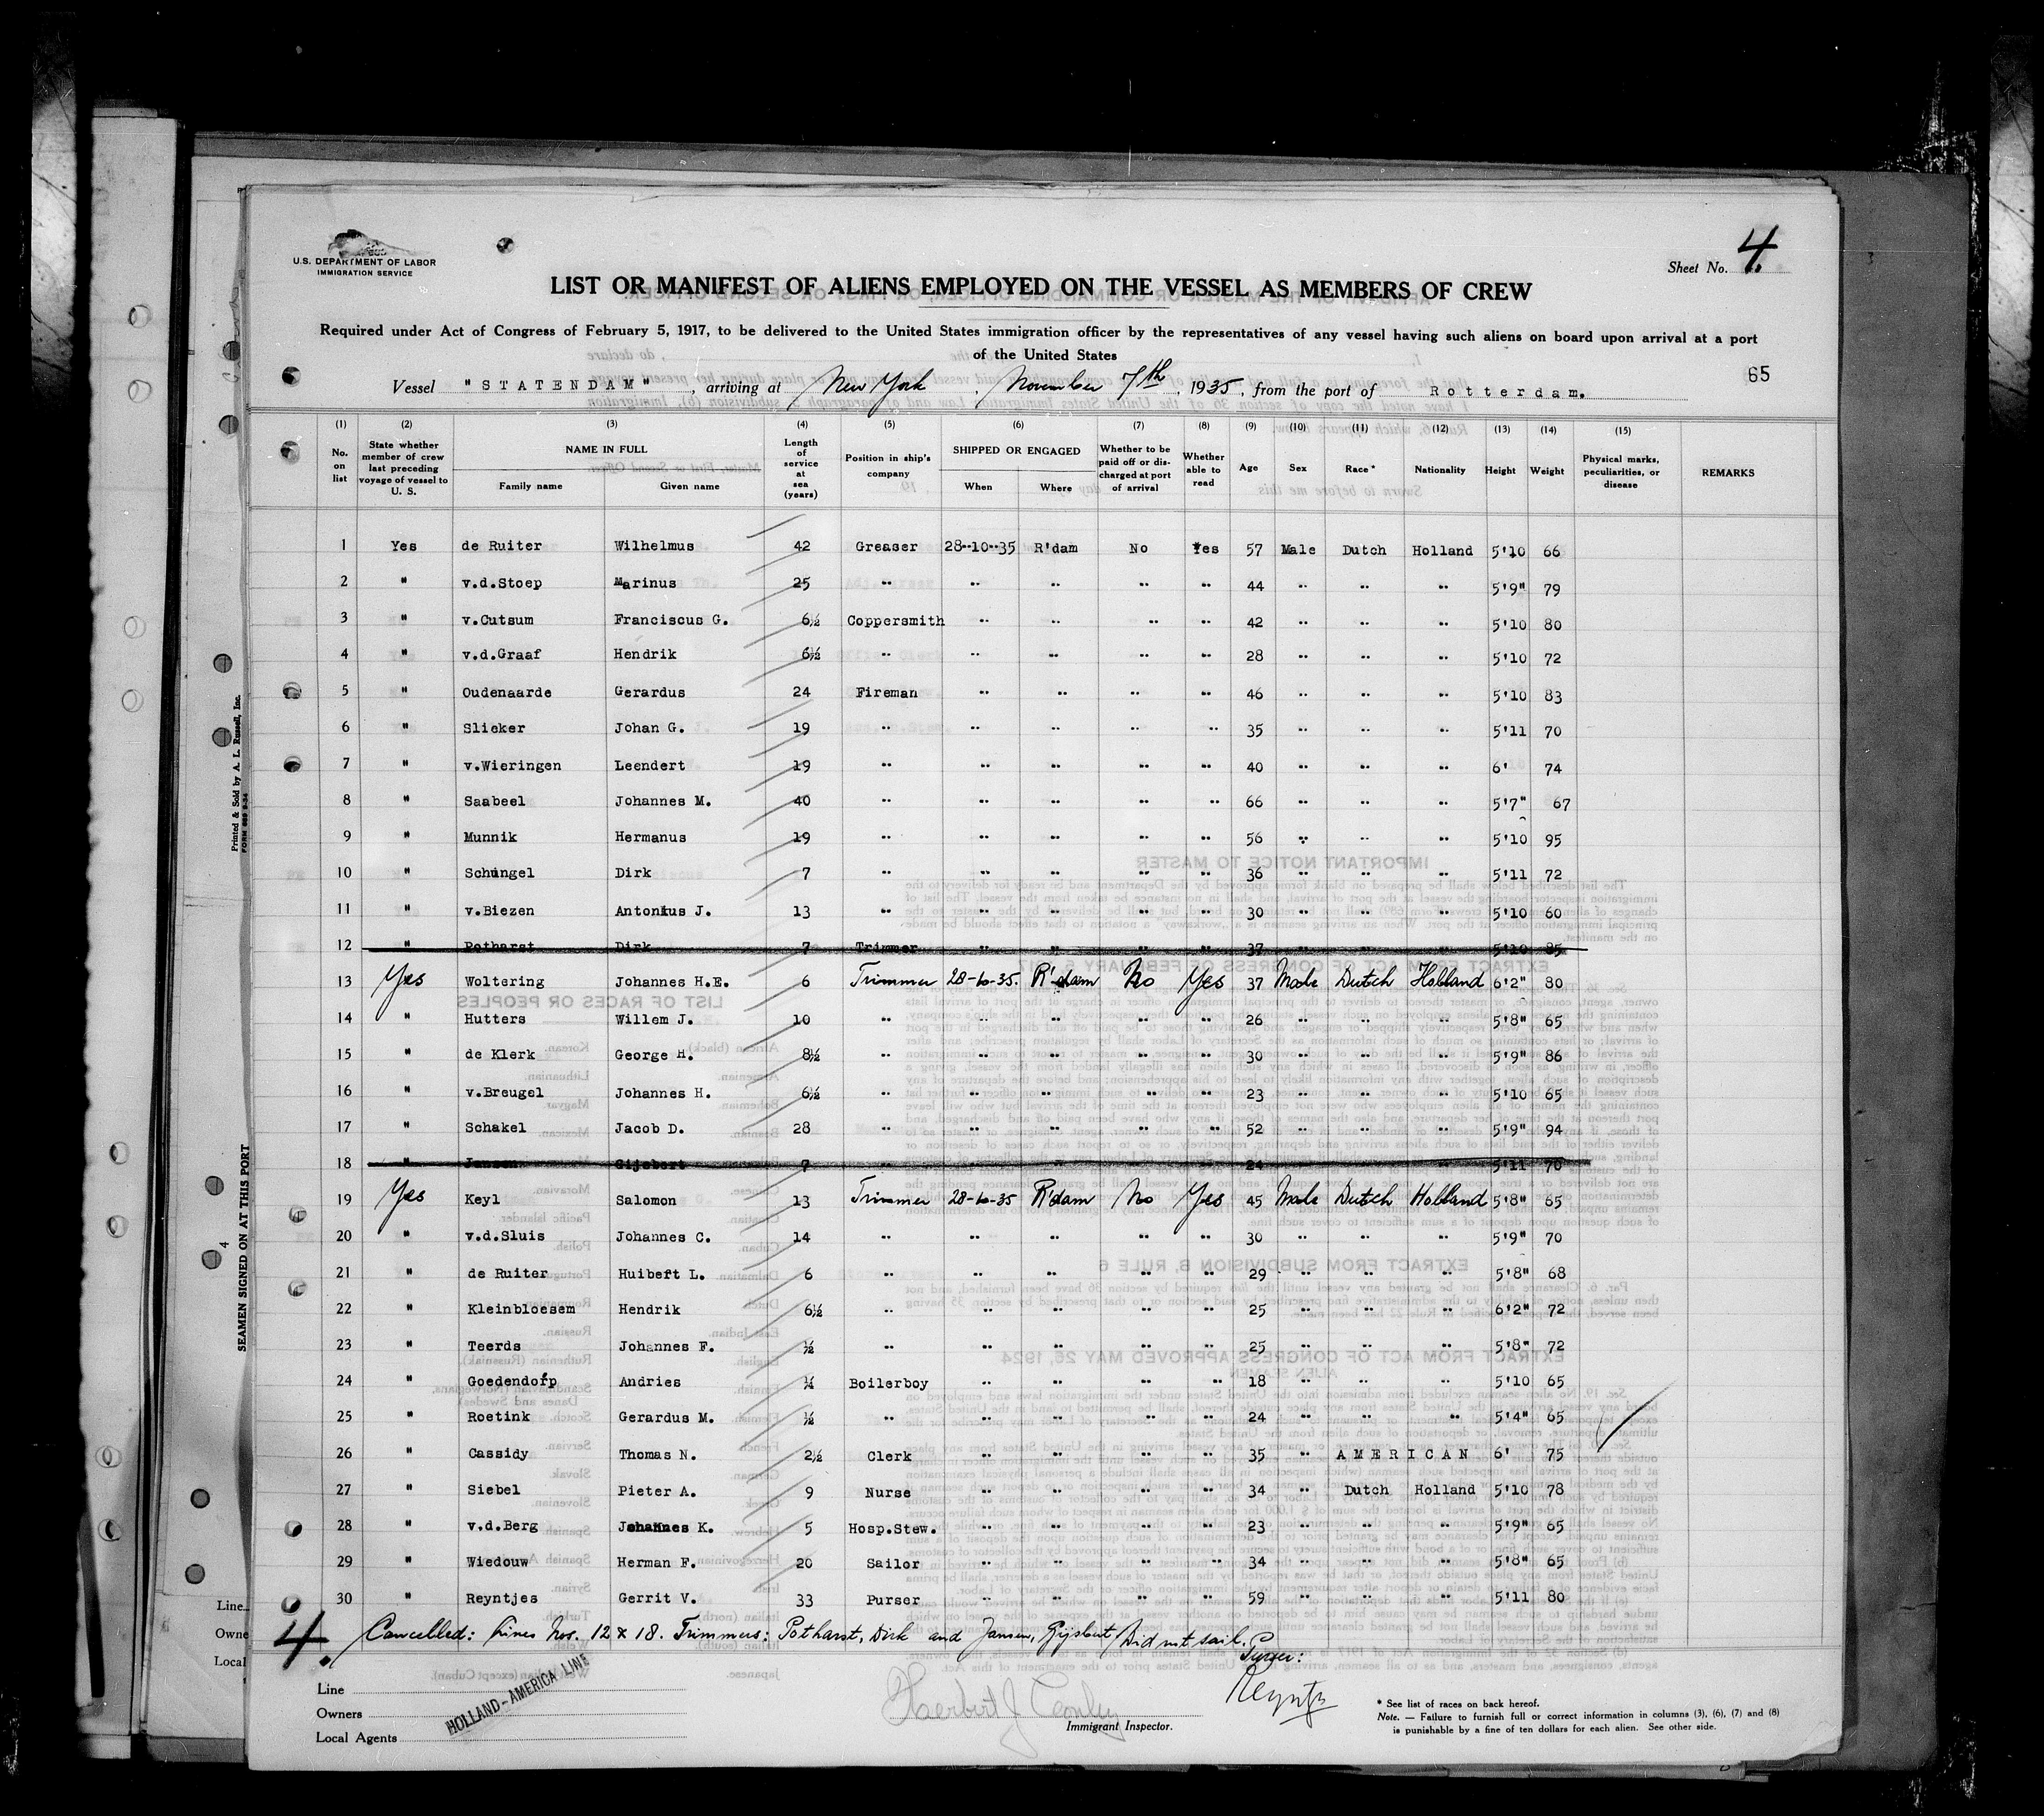 U.S. DEPARTMENT OF LABOR
IMMIGRATION SERVICE
Sheet No. 4.
LIST OR MANIFEST OF ALIENS EMPLOYED ON THE VESSEL AS MEMBERS OF CREW
Required under Act of Congress of February 5, 1917, to be delivered to the United States immigration officer by the representatives of any vessel having such aliens on board upon arrival at a port
of the United States
65
Vessel "STATENDAM", arriving at New York, November 7th, 1935, from the port of Rotterdam.
(1) (2) (3) (4) (5) (6) (7) (8) (9) (10) (11) (12) (13) (14) (15)
No. on list State whether member of crew last preceding voyage of vessel to U. S. NAME IN FULL Family name Given name Length of service at sea (years) Position in ship's company SHIPPED OR ENGAGED When Where Whether to be paid off or discharged at port of arrival Whether able to read Age Sex Race* Nationality Height Weight Physical marks, peculiarities, or disease REMARKS
1 Yes de Ruiter Wilhelmus 42 Greaser 28-10-35 R'dam No Yes 57 Male Dutch Holland 5'10 66
2 " v.d.Stoep Marinus 25 " " " " " 44 " " " 5'9" 79
3 " v.Cutsum Franciscus G. 6½ Coppersmith " " " " 42 " " " 5'10 80
4 " v.d.Graaf Hendrik 6½ " " " " " 28 " " " 5'10 72
5 " Oudenaarde Gerardus 24 Fireman " " " " 46 " " " 5'10 83
6 " Slieker Johan G. 19 " " " " " 35 " " " 5'11 70
7 " v.Wieringen Leendert 19 " " " " " 40 " " " 6' 74
8 " Saabeel Johannes M. 40 " " " " " 66 " " " 5'7" 67
9 " Munnik Hermanus 19 " " " " " 56 " " " 5'10 95
10 " Schüngel Dirk 7 " " " " " 36 " " " 5'11 72
11 " v.Biezen Antonius J. 13 " " " " " 30 " " " 5'10 60
12 " Potharst Dirk 7 Trimmer " " " " 37 " " " 5'10 85
13 Yes Woltering Johannes H.E. 6 Trimmer 28-10-35. R'dam No Yes 37 Male Dutch Holland 6'2" 80
14 " Hutters Willem J. 10 " " " " " 26 " " " 5'8" 65
15 " de Klerk George H. 8½ " " " " " 30 " " " 5'9" 86
16 " v.Breugel Johannes H. 6½ " " " " " 23 " " " 5'10 65
17 " Schakel Jacob D. 28 " " " " " 52 " " " 5'9" 94
18 " Jansen Gijsbert 7 " " " " " 24 " " " 5'11 70
19 Yes Keyl Salomon 13 Trimmer 28-10-35 R'dam No Yes 45 Male Dutch Holland 5'8" 65
20 " v.d.Sluis Johannes C. 14 " " " " " 30 " " " 5'9" 70
21 " de Ruiter Huibert L. 6 " " " " " 29 " " " 5'8" 68
22 " Kleinbloesem Hendrik 6½ " " " " " 25 " " " 6'2" 72
23 " Teerds Johannes F. ½ " " " " " 25 " " " 5'8" 72
24 " Goedendorp Andries ¼ Boilerboy " " " " 18 " " " 5'10 65
25 " Roetink Gerardus M. ½ " " " " " 24 " " " 5'4" 65
26 " Cassidy Thomas N. 2½ Clerk " " " " 35 " AMERICAN 6' 75
27 " Siebel Pieter A. 9 Nurse " " " " 34 " Dutch Holland 5'10 78
28 " v.d.Berg Johannes K. 5 Hosp.Stew. " " " " 23 " " " 5'9" 65
29 " Wiedouw Herman F. 20 Sailor " " " " 34 " " " 5'8" 65
30 " Reyntjes Gerrit V. 33 Purser " " " " 59 " " " 5'11 80
4. Cancelled: Lines Nos. 12 & 18. Trimmers: Potharst, Dirk and Jansen, Gijsbert Did not sail.
Purser:
Line
Owners
Local Agents
HOLLAND-AMERICA LINE
Immigrant Inspector.
* See list of races on back hereof.
Note. — Failure to furnish full or correct information in columns (3), (6), (7) and (8)
is punishable by a fine of ten dollars for each alien. See other side.
Printed & Sold by A. L. Russell, Inc.
SEAMEN SIGNED ON AT THIS PORT
4
Line
Owne
Local